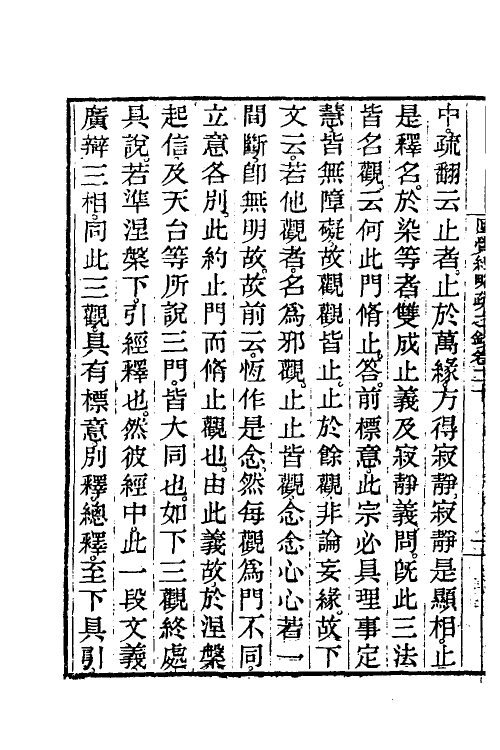 中。疏翻云止者。止於萬緣。方得寂靜。寂靜是顯相。止
是釋名。於染等者。雙成止義及寂靜義。問。旣此三法
皆名觀。云何此門脩止。答。前標意。此宗必具理事定
慧皆無障礙。故觀觀皆止。止於餘觀。非論妄緣。故下
文云。若他觀者。名爲邪觀。止止皆觀。念念心心。若一
間斷。卽無明故。故前云。恆作是念。然每觀爲門不同。
立意各別。此約止門而脩止觀也。由此義故。於涅槃
起信及天台等所說三門。皆大同也。如下三觀終處
具說。若準涅槃下。引經釋也。然彼經中。此一段文義
廣辯三相。同此三觀。具有標意。別釋。總釋。至下具引。
圓覺經略疏之鈔卷二十